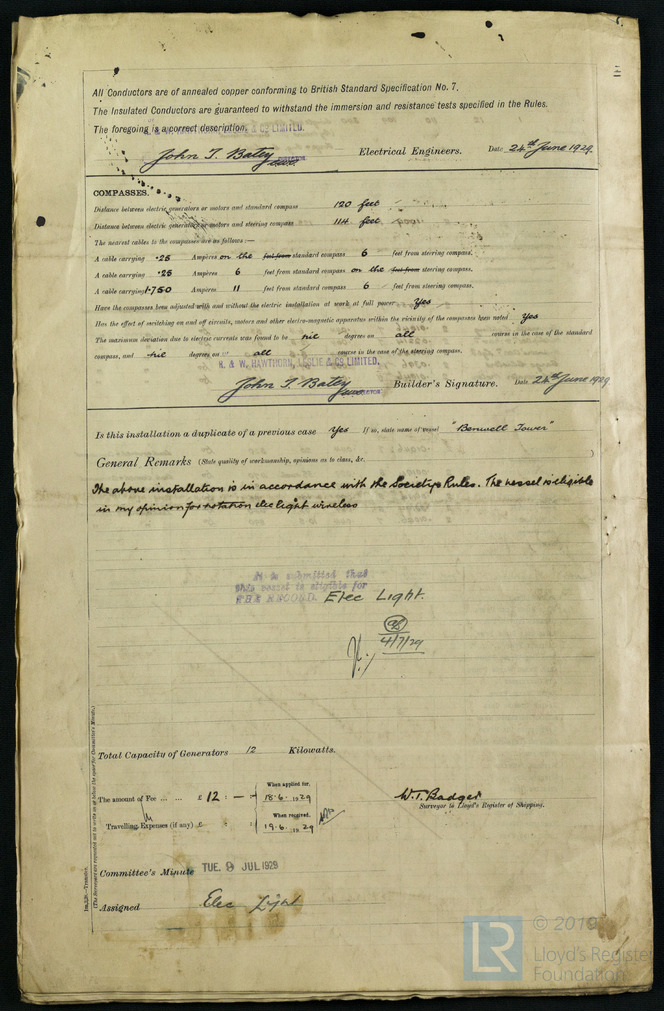 All Conductors are of annealed copper conforming to British Standard Specification No. 7.
The Insulated Conductors are guaranteed to withstand the immersion and resistance tests specified in the Rules.
The foregoing is a correct description. & CO LIMITED.
John T. Batey Electrical Engineers. Date 24th June 1929.
COMPASSES.
Distance between electric generators or motors and standard compass 120 feet
Distance between electric generators or motors and steering compass 114 feet
The nearest cables to the compasses are as follows:—
A cable carrying .25 Ampères on the feet from standard compass 6 feet from steering compass.
A cable carrying .25 Ampères 6 feet from standard compass on the feet from steering compass.
A cable carrying 1.750 Ampères 11 feet from standard compass 6 feet from steering compass.
Have the compasses been adjusted with and without the electric installation at work at full power Yes
Has the effect of switching on and off circuits, motors and other electro-magnetic apparatus within the vicinity of the compasses been noted Yes
The maximum deviation due to electric currents was found to be nil degrees on all course in the case of the standard
compass, and nil degrees on all course in the case of the steering compass.
R. & W. HAWTHORN, LESLIE & CO. LIMITED,
John T. Batey Builder's Signature. Date 24th June 1929
Is this installation a duplicate of a previous case Yes If so, state name of vessel "Benwell Tower"
General Remarks (State quality of workmanship, opinions as to class, &c. )
The above installation is in accordance with the Society's Rules. The vessel is eligible
in my opinion for notation elec light wireless
It is submitted that
this vessel is eligible for
THE RECORD. Elec Light.
4/7/29
Total Capacity of Generators 12 Kilowatts.
The amount of Fee ... ... £ 12 : — : When applied for, 18.6.1929
Travelling Expenses (if any) £ : : When received, 19.6.1929
W. T. Badger
Surveyor to Lloyd's Register of Shipping.
Committee's Minute TUE. 9 JUL 1929
Assigned Elec Light
(The Surveyors are requested not to write on or below the space for Committee's Minute.)
© 2019
LR Lloyd's Register
Foundation